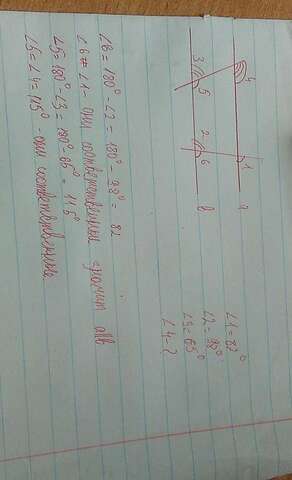 3
4
5
2
1
6
a
b
∠1 = 82°
∠2 = 98°
∠3 = 65°
∠4 - ?
∠6 = 180° - ∠2 = 180° - 98° = 82
∠6 = ∠1 - они соответственные значит a∥b
∠5 = 180° - ∠3 = 180° - 65° = 115°
∠5 = ∠4 = 115° - они соответственные